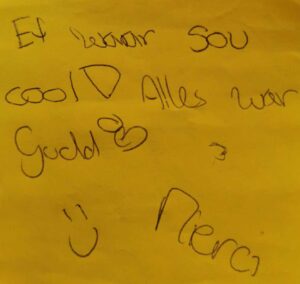 Et wouar sou
cool Alles war
Gudd
:)
Merci